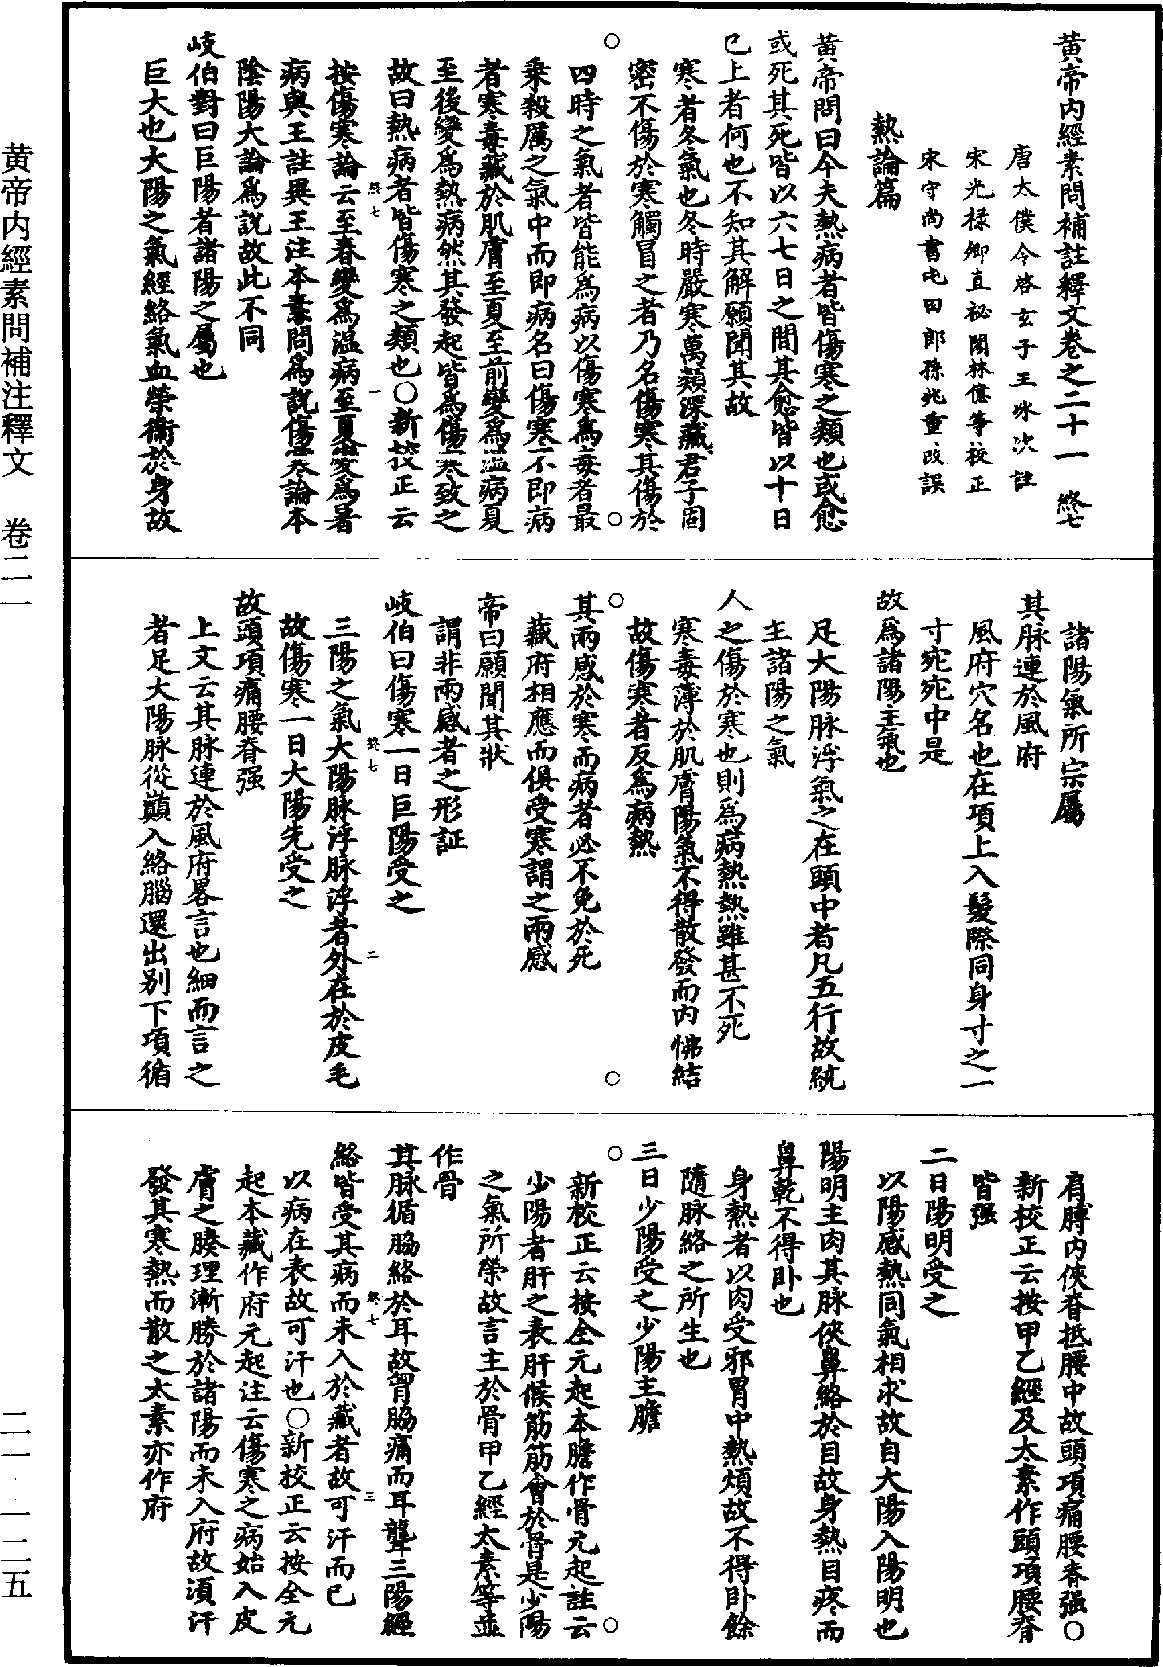 黄帝内經素問補註釋文卷之二十一　終七
唐太僕令啓玄子王冰次註
宋光祿卿直秘閣林億等校正
宋守尚書屯田郎孫兆重改誤
熱論篇
黄帝問曰今夫熱病者皆傷寒之類也或愈
或死其死皆以六七日之間其愈皆以十日
已上者何也不知其解願聞其故
寒者冬氣也冬時嚴寒萬類深藏君子固
密不傷於寒觸冒之者乃名傷寒其傷於
四時之氣者皆能爲病以傷寒爲毒者最
乘殺厲之氣中而即病名曰傷寒不即病
者寒毒藏於肌膚至夏至前變爲温病夏
至後變爲熱病然其發起皆爲傷寒致之
故曰熱病者皆傷寒之類也○新校正云
按傷寒論云至春變爲温病至夏變爲暑
病與王註異王注本素問爲說傷寒論本
陰陽大論爲說故此不同
岐伯對曰巨陽者諸陽之屬也
巨大也大陽之氣經絡氣血榮衞於身故
諸陽氣所宗屬
其脉連於風府
風府穴名也在項上入髮際同身寸之一
寸宛宛中是
故爲諸陽主氣也
足大陽脉浮氣之在頭中者凡五行故統
主諸陽之氣
人之傷於寒也則爲病熱熱雖甚不死
寒毒薄於肌膚陽氣不得散發而内怫結
故傷寒者反爲病熱
其兩感於寒而病者必不免於死
藏府相應而俱受寒謂之兩感
帝曰願聞其狀
謂非兩感者之形証
岐伯曰傷寒一日巨陽受之
三陽之氣大陽脉浮脉浮者外在於皮毛
故傷寒一日大陽先受之
故頭項痛腰脊强
上文云其脉連於風府畧言也細而言之
者足大陽脉從巔入絡腦還出别下項循
肩膊内俠脊抵腰中故頭項痛腰脊强○
新校正云按甲乙經及太素作頭項腰脊
皆强
二日陽明受之
以陽感熱同氣相求故自大陽入陽明也
陽明主肉其脉俠鼻絡於目故身熱目疼而
鼻乾不得卧也
身熱者以肉受邪胃中熱煩故不得卧餘
隨脉絡之所生也
三日少陽受之少陽主膽
新校正云按全元起本膽作骨元起註云
少陽者肝之表肝候筋筋會於骨是少陽
之氣所榮故言主於骨甲乙經太素等並
作骨
其脉循脇絡於耳故胷脇痛而耳聾三陽經
絡皆受其病而未入於藏者故可汗而已
以病在表故可汗也○新校正云按全元
起本藏作府元起注云傷寒之病始入皮
膚之腠理漸勝於諸陽而未入府故湏汗
發其寒熱而散之太素亦作府
終七　一
終七　二
終七　三
黄帝内經素問補注釋文　卷二一
二一·一二五